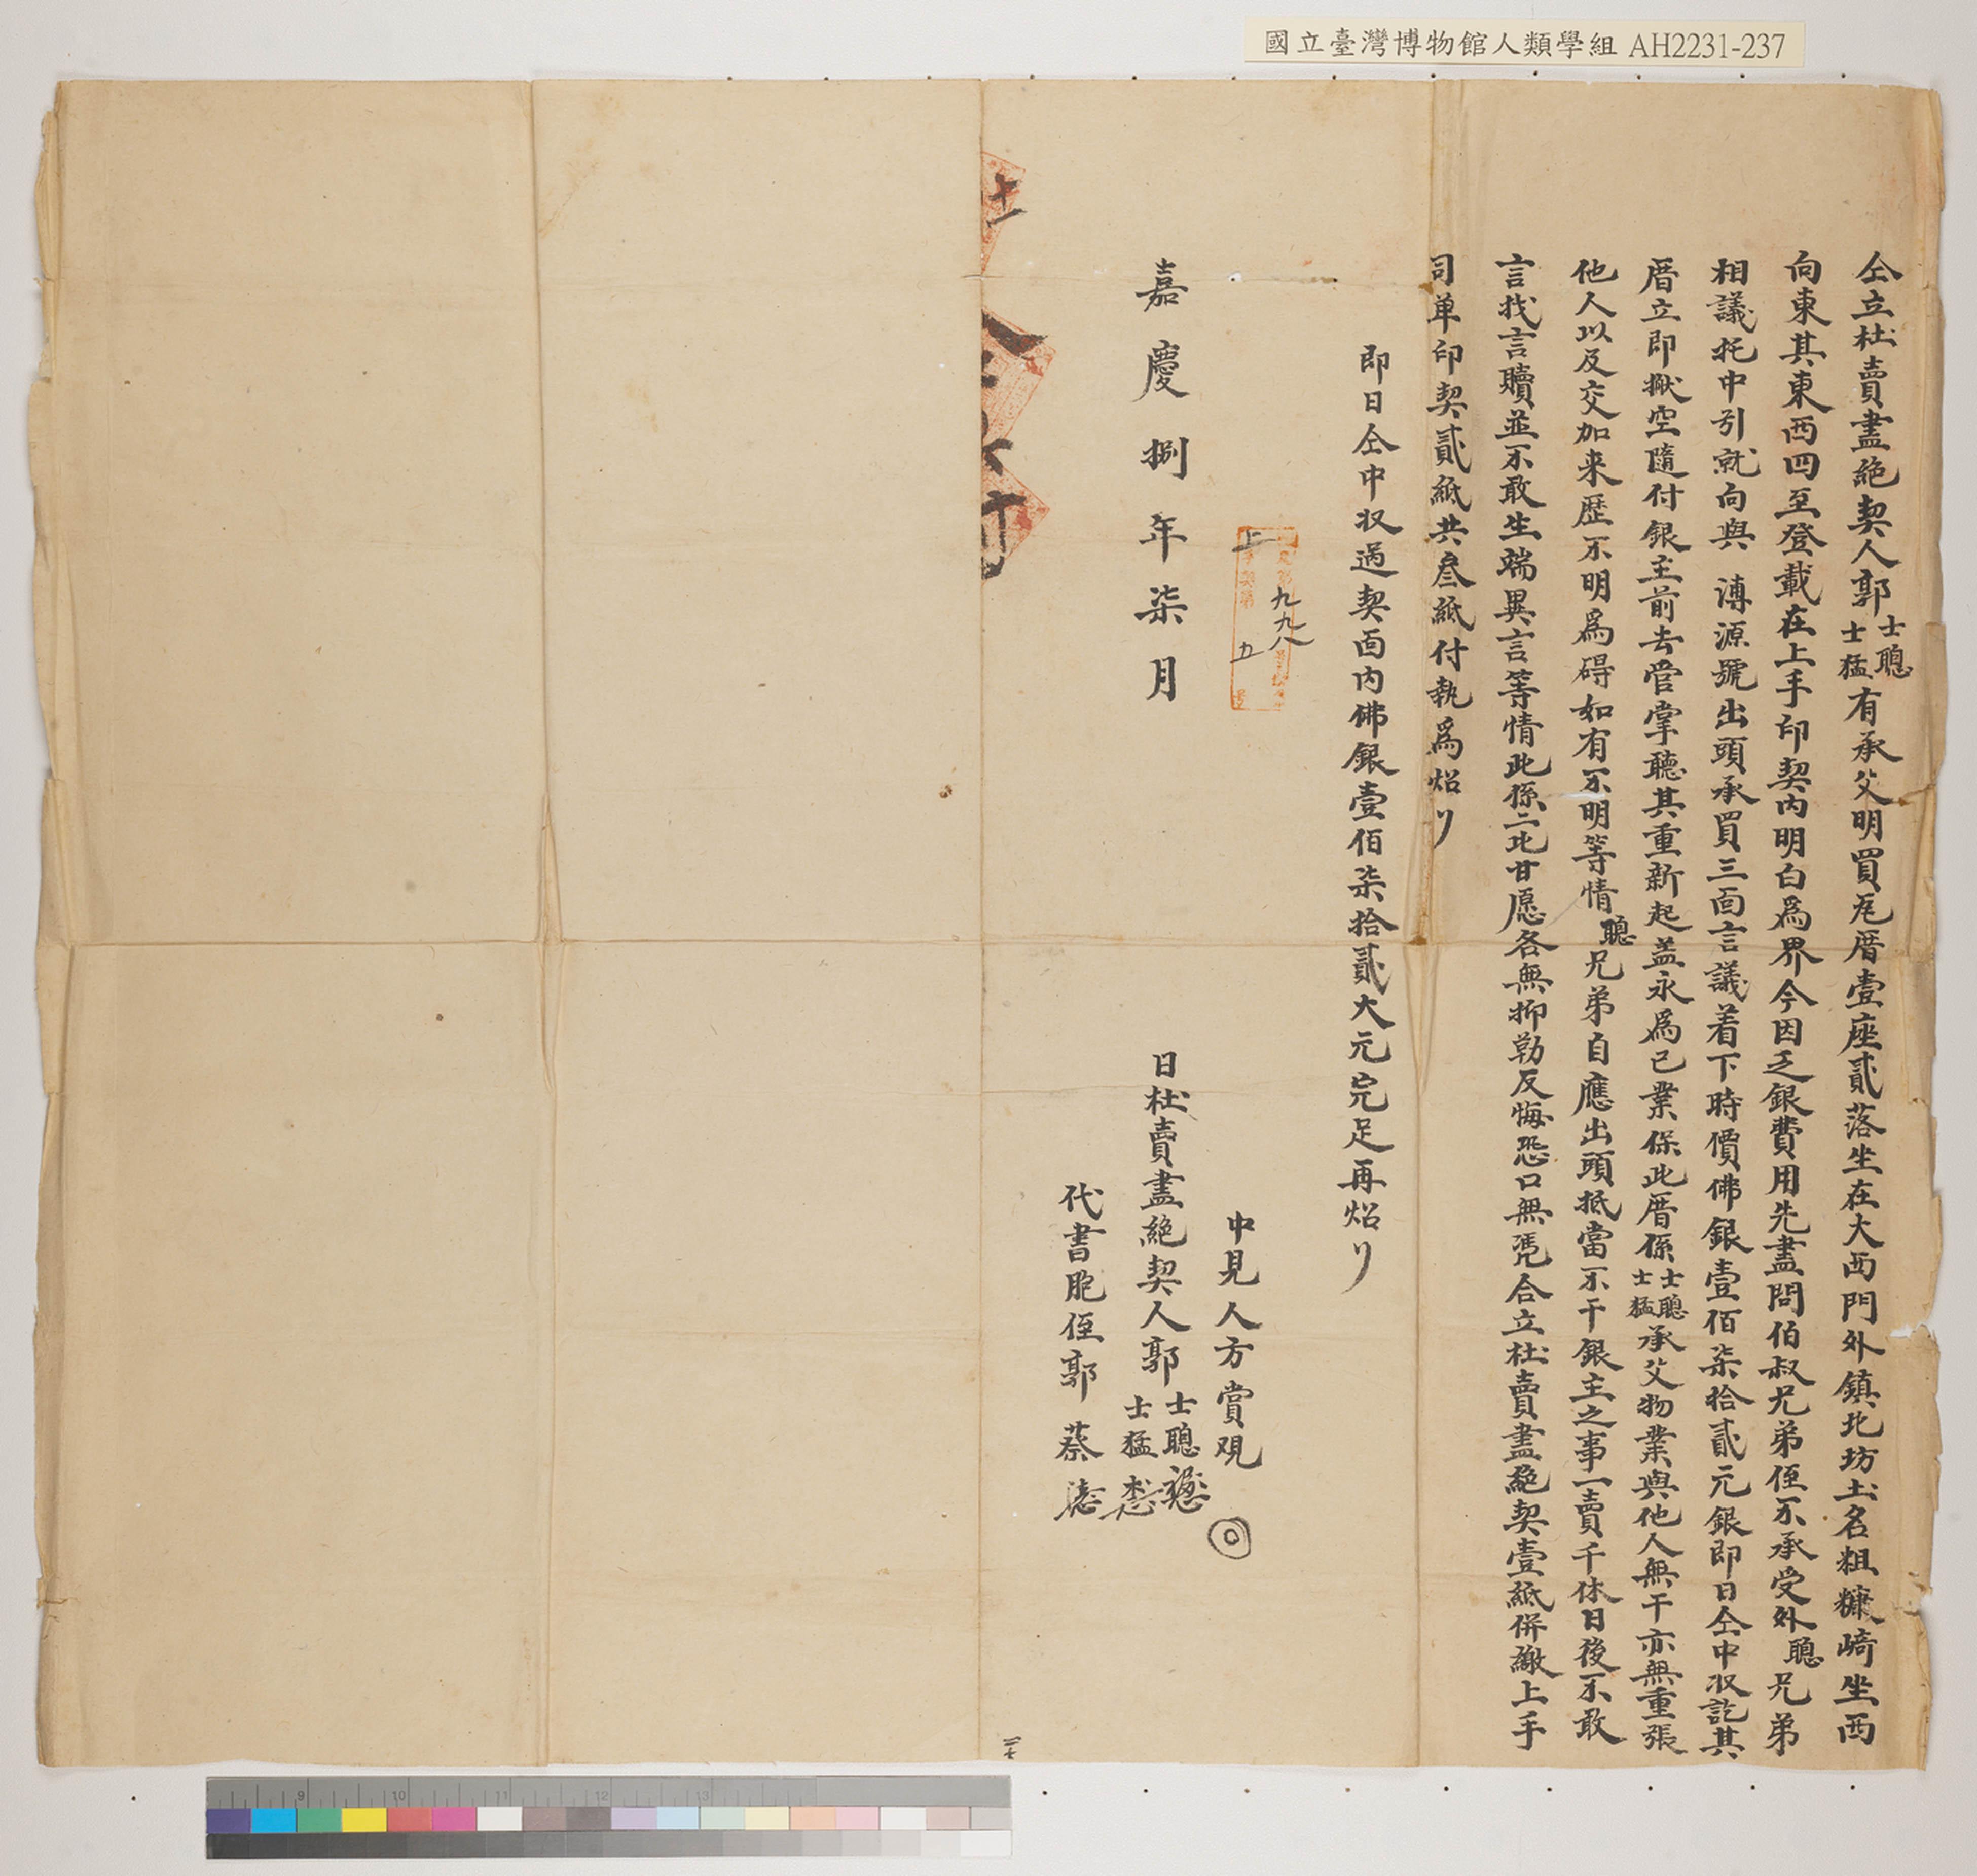 國立臺灣博物館人類學組 AH2231-237
仝立杜賣盡絕契人郭士聰士猛有承父明買瓦厝壹座貳落坐在大西門外鎮北坊土名粗糠崎坐西
向東其東西四至登載在上手印契內明白爲界今因乏銀費用先盡問伯叔兄弟侄不承受外聰兄弟
相議托中引就向與 漙源號出頭承買三面言議着下時價佛銀壹佰柒拾貳元銀即日仝中収訖其
厝立即搬空隨付銀主前去管掌聽其重新起盖永爲己業保此厝係士聰士猛承父物業與他人無干亦無重張
他人以及交加来歷不明爲碍如有不明等情聰兄弟自應出頭抵當不干銀主之事一賣千休日後不敢
言找言贖並不敢生端異言等情此係二比甘愿各無抑勒反悔恐口無凭合立杜賣盡絕契壹紙併繳上手
司单印契貳紙共叁紙付執爲炤
即日仝中収過契面内佛銀壹佰柒拾貳大元完足再炤
九九八
上 五
中見人方賞观
嘉慶捌年柒月 日杜賣盡絕契人郭士聰士猛
代書胞侄郭蔡